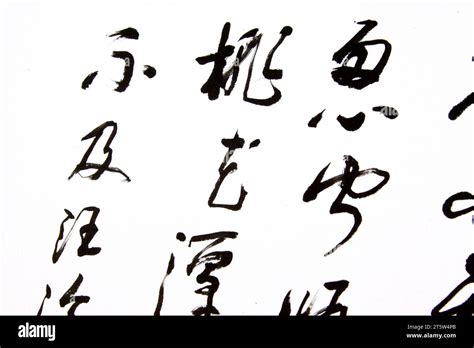 忽闻
桃花潭
不及汪伦
alamy
Image ID: 2T5W4PB
www.alamy.com